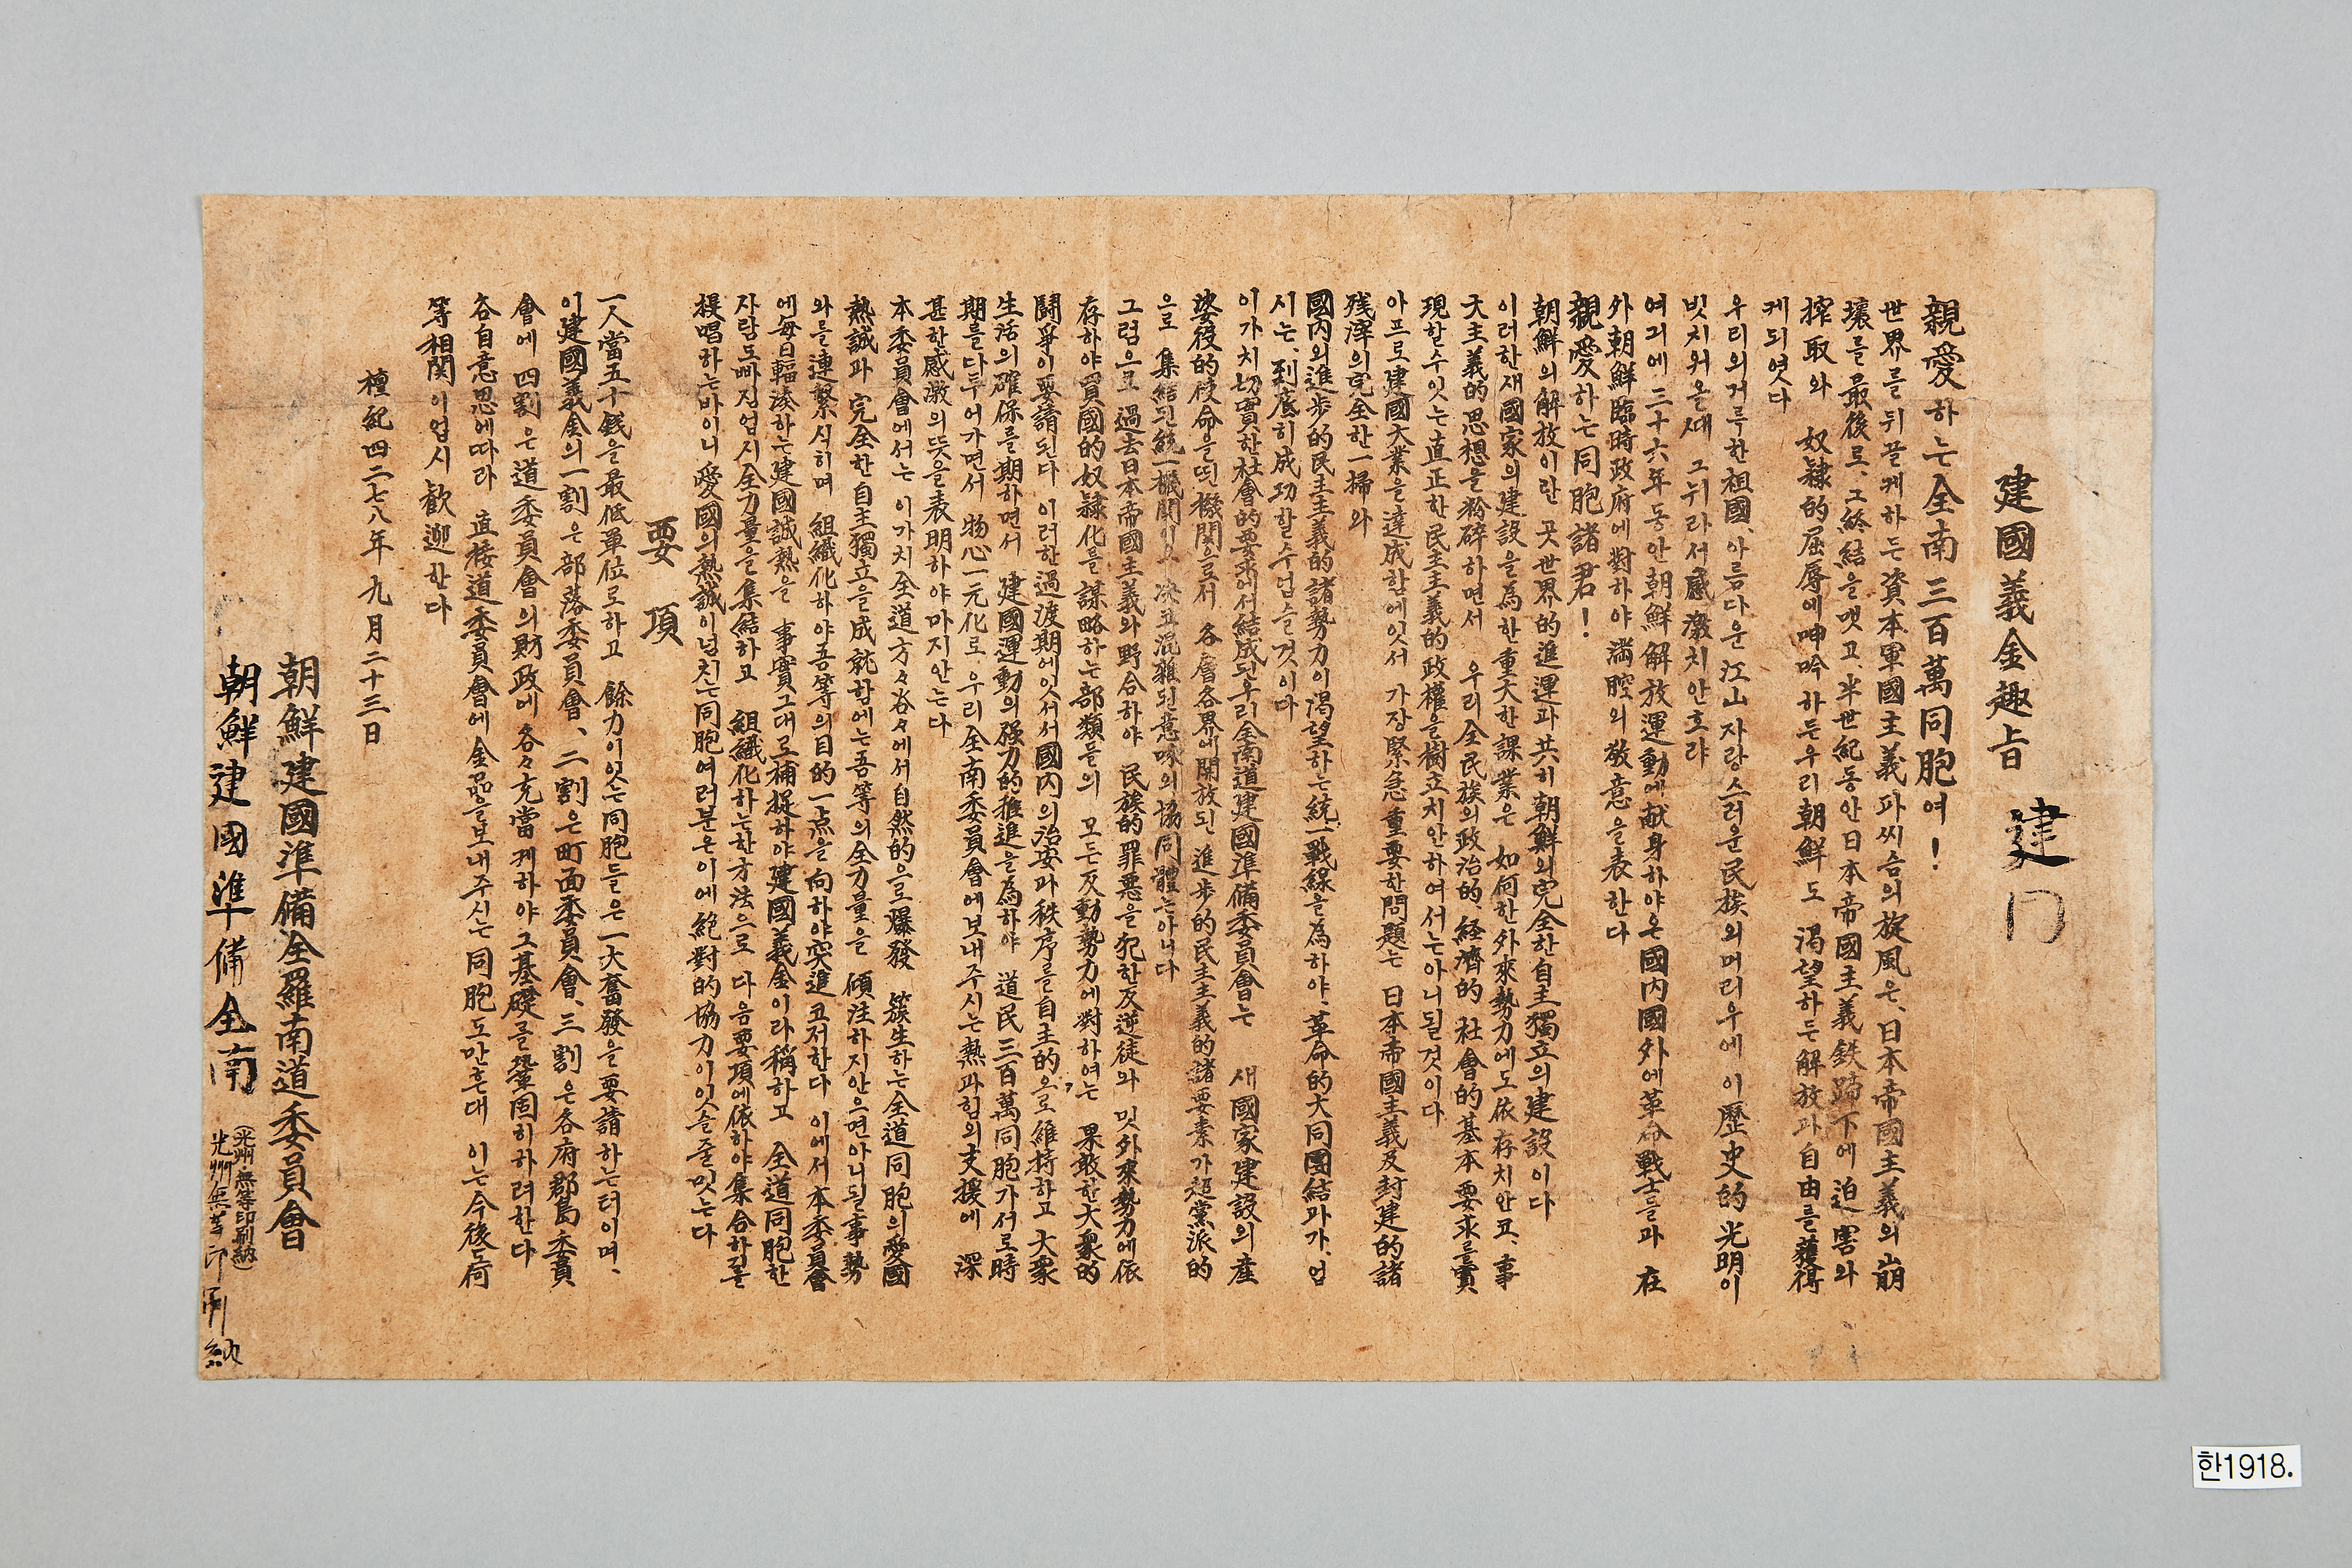 建國義金趣旨
建
親愛하는全南三百萬同胞여!
世界를뒤끌케하든資本軍國主義파씨슴의旋風은、日本帝國主義의崩
壞를最後로、그終結을맷고、半世紀동안日本帝國主義鉄蹄下에迫害와
搾取와 奴隷的屈辱에呻吟하든우리朝鮮도 渴望하든解放과自由를獲得
케되엿다
우리의거륵한祖國、아름다운江山자랑스러운民族의머리우에 이歷史的光明이
빗치워올때 그뉘라서感激치안흐랴
여긔에三十六年동안朝鮮解放運動에献身하야온國内國外에革命戰士들과 在
外朝鮮臨時政府에對하야滿腔의敬意을表한다
親愛하는同胞諸君!
朝鮮의解放이란 곳世界的進運과共히朝鮮의完全한自主獨立의建設이다
이러한새國家의建設을爲한重大한課業은 如何한外來勢力에도依存치안코、事
大主義的思想을粉碎하면서 우리全民族의政治的經濟的社會的基本要求를實
現할수잇는直正한民主主義的政權을樹立치안하여서는아니될것이다
아프로建國大業을達成함에잇서 가장緊急重要한問題는 日本帝國主義及封建的諸
残滓의完全한一掃와
國内의進步的民主主義的諸勢力이渴望하는統一戰線을爲하야、革命的大同團結과가、업
시는、到底히成功할수업슬것이다
이가치切實한社會的要求에서結成된우리全南道建國準備委員會는 새國家建設의産
婆役的使命을띈機關으로서 各層各界에開放된進步的民主主義的諸要素가超黨派的
으로 集結된統一機關이오 決코混雜된意味의協同體는아니다
그럼으로 過去日本帝國主義와野合하야 民族的罪惡을犯한反逆徒와 밋外來勢力에依
存하야買國的奴隷化를謀略하는部類들의 모든反動勢力에對하여는 果敢한大衆的
鬪爭이要請된다 이러한過渡期에잇서서國内의治安과秩序를自主的으로維持하고 大衆
生活의確保를期하면서 建國運動의强力的推進을爲하야 道民三百萬同胞가서로時
期를다투어가면서 物心一元化로、우리全南委員會에보내주시는熱과힘의支援에 深
甚한感激의뜻을表明하야마지안는다
本委員會에서는 이가치全道方々谷々에서自然的으로爆發 簇生하는全道同胞의愛國
熱誠과 完全한自主獨立을成就함에는吾等의全力量을 傾注하지안으면아니될事勢
와를連繫식히며 組織化하야吾等의目的一点을向하야突進코저한다 이에서本委員會
에每日輻湊하는建國誠熱을 事實그대로捕捉하야建國義金이라稱하고 全道同胞한
자람도빠짐업시全力量을集結하고 組織化하는한方法으로 다음要項에依하야集合하기를
提唱하는바이니愛國의熱誠이넘치는同胞여러분은이에絶對的協力이잇슬줄밋는다
要項
一人當五十錢을最低單位로하고 餘力이잇는同胞들은一大奮發을要請하는터이며、
이建國義金의一割은部落委員會、二割은町面委員會、三割은各府郡島委員
會에四割은道委員會의財政에各々充當케하야그基礎를鞏固히하려한다
各自意思에따라 直接道委員會에金品을보내주시는同胞도만흔대 이는今後도何
等相関이업시歡迎한다
檀紀四二七八年九月二十三日
朝鮮建國準備全羅南道委員會
(光州無等印刷納)
朝鮮建國準備全南
光州無等印刷納
한1918.